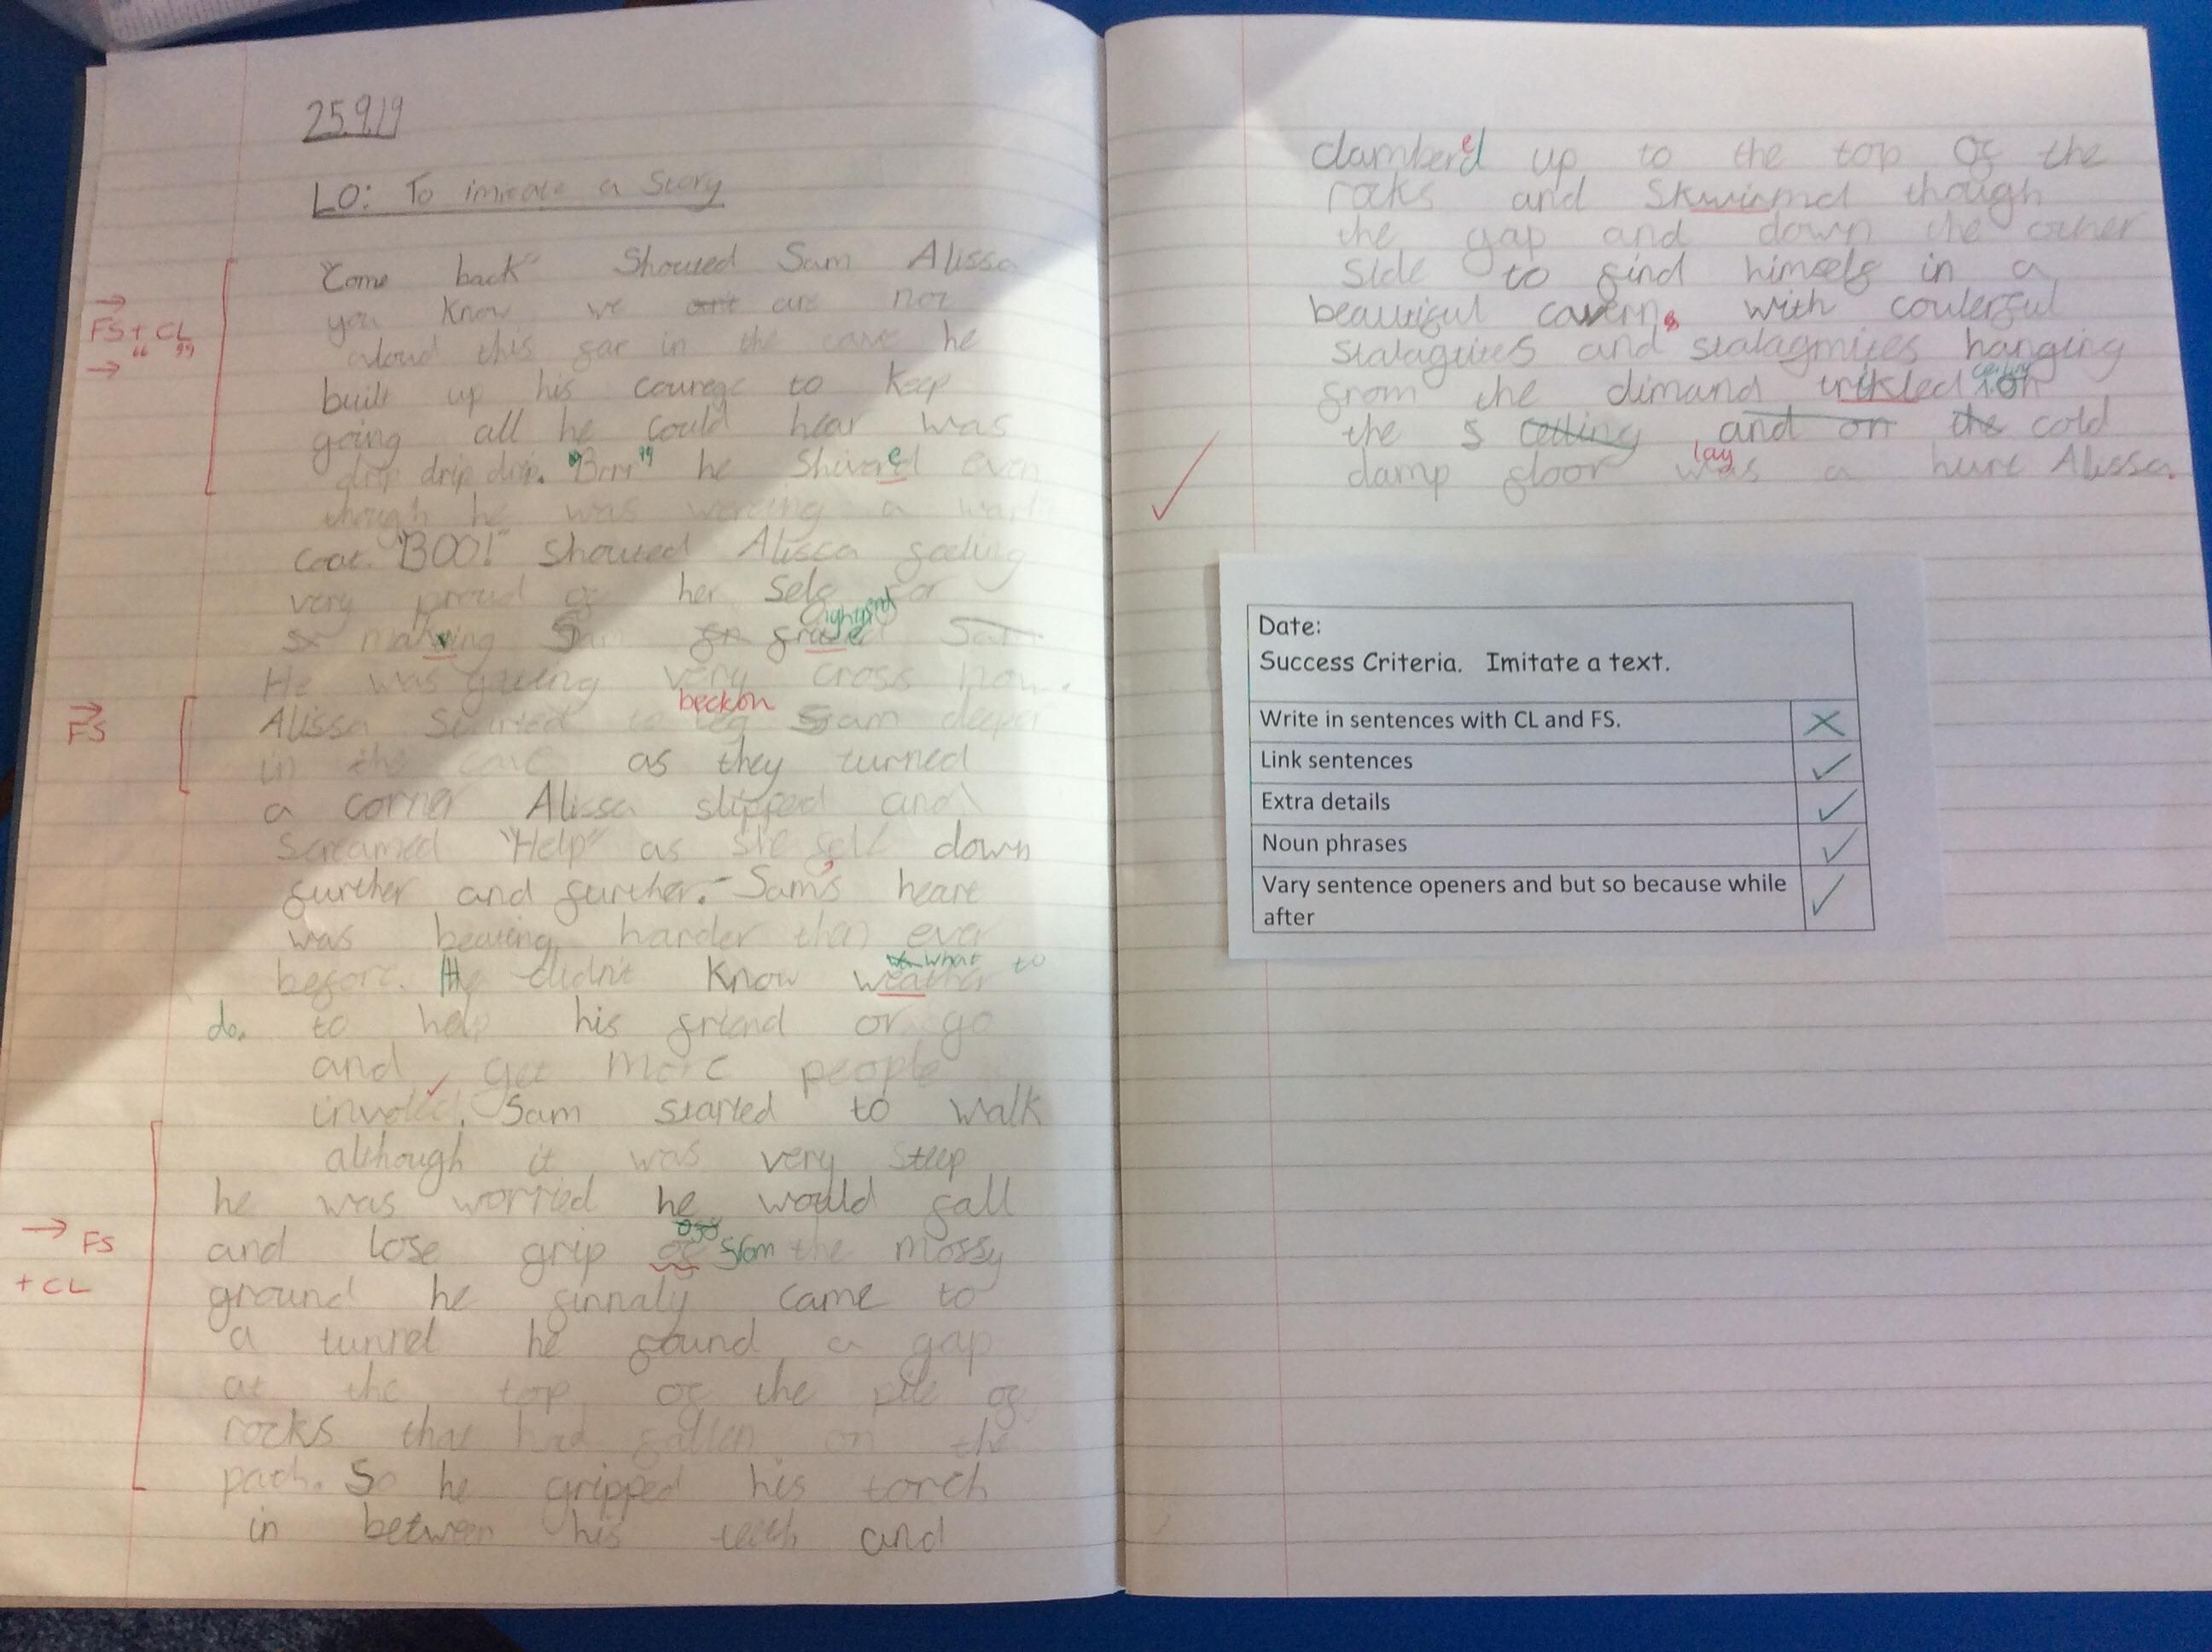 25.9.19
LO: To imitate a Story
→
FS + CL
→ " "
"Come back" Shouted Sam Alissa
you know we are not
aloud this far in the cave he
built up his courege to keep
going all he could hear was
drip drip drip. "Brrr" he Shivered even
though he was wearing a warm
coat. "BOO!" Shouted Alissa feeling
very proud of her self for
making Sam frightened
He was getting very cross now.
→
FS
beckon
Alissa Started to Sam deeper
in the cave as they turned
a corner Alissa slipped and
screamed "Help" as she fell down
further and further. Sam's heart
was beating harder than ever
what to
before. He didn't know weather
do. to help his friend or go
and get more people
involed. Sam started to walk
although it was very steep
he was worried he would fall
→ FS
+ CL
off
and lose grip of from the mossy
ground he finnaly came to
a tunnel he found a gap
at the top of the pile of
rocks that had fallen on the
path. So he gripped his torch
in between his teeth and
clambered up to the top Of the
rocks and Skwirmd though
the gap and down the other
side to find himself in a
beautiful cavern with coulerful
stalagtites and stalagmites hanging
ceiling
from the dimand trikled on
the s ceiling and on the cold
lay
damp floor was a hurt Alissa.
Date:
Success Criteria. Imitate a text.
Write in sentences with CL and FS.
Link sentences
Extra details
Noun phrases
Vary sentence openers and but so because while
after